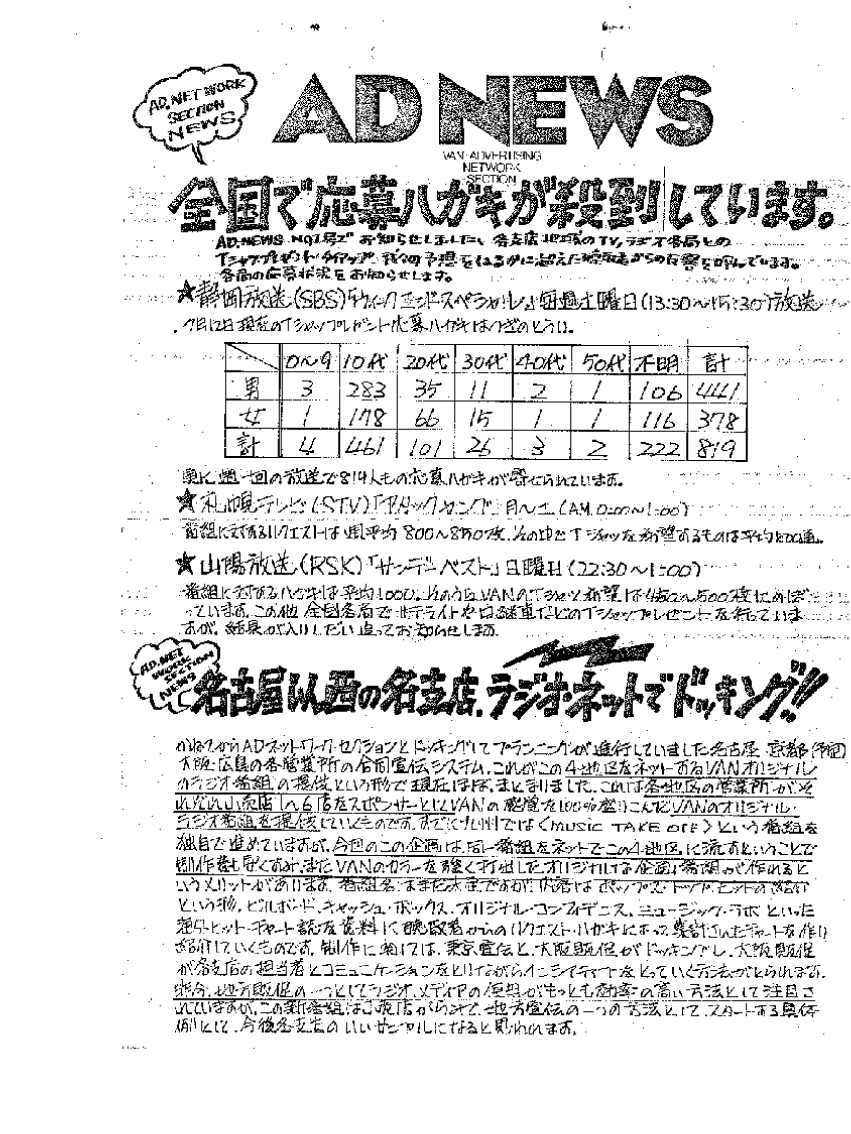 AD. NET WORK
SECTION
NEWS
AD NEWS
VAN-ADVERTISING
NETWORK
SECTION
全国で応募ハガキが殺到しています。
AD.NEWS NO.1号でお知らせしました、各支店地域のTV,ラジオ各局との
Tシャツプレゼント・タイアップ 我々の予想をはるかに超えた聴取者からの反響を呼んでいます。
各局の応募状況をお知らせします。
★静岡放送(SBS)「ウィークエンドスペシャル」毎週土曜日(13:30〜15:30)放送
7月12日現在のTシャツプレゼント応募ハガキはつぎのとうり。
0〜9 10代 20代 30代 40代 50代 不明 計
男 3 283 35 11 2 1 106 441
女 1 178 66 15 1 1 116 378
計 4 461 101 26 3 2 222 819
週一回の放送で819人もの応募ハガキが寄せられています。
★札幌テレビ(STV)「アタックヤング」月〜土(AM.0:00〜1:00)
番組に対するリクエストは週平均800〜850枚、そのなかでTシャツを希望するものは平均
★山陽放送(RSK)「サンデーベスト」日曜日(22:30〜1:00)
番組に対するハガキは平均1000、そのうちVANのTシャツ希望は
っています。この他全国各局でサテライトや中継車などのTシャツプレゼントを行っていま
すが、結果が入りしだい追ってお知らせします。
AD.NET
WORK
SECTION
NEWS
名古屋以西の各支店、ラジオ・ネットでドッキング!!
かねてからADネットワークセクションとドッキングしてプランニングが進行していました名古屋、京都
大阪、広島の各営業所の合同宣伝システム。これがこの4地区をネットするVANオリジナル
のラジオ番組の提供という形で現在ほぼまとまりました。これは各地区の営業所がそ
れぞれ小売店 6店をスポンサーとしてVANの感覚を100%盛りこんだVANのオリジナル・
ラジオ番組を提供していくものです。すでに九州では〈MUSIC TAKE OFF〉という番組を
独自で進めていますが、今回のこの企画は、同一番組をネットでこの4地区に流すということで
制作費も安くすみ、またVANのカラーを強く打出したオリジナルな企画、番組が作れると
いうメリットがあります。番組名はまだ未定ですが、内容はポップス・トップヒットの紹介
という形、ビルボード、キャッシュ・ボックス、オリジナル・コンフィデンス、ミュージック・ラボといった
ヒット・チャート誌を資料に聴取者からのリクエスト・ハガキによって集計されたチャートを作り
紹介していくものです。制作に当っては、東京宣伝と、大阪販促がドッキングし、大阪販促
が各支店の担当者とコミュニケーションをとりながらイニシアティブをとっていく方法がとられます。
地方販促の一つとしてラジオ・メディアの使用がもっとも効率の高い方法として注目さ
れていますが、この新番組は小売店がらみで、地方宣伝の一つの方法として、スタートする具体
例として、今後各支店のいいサンプルになると思われます。